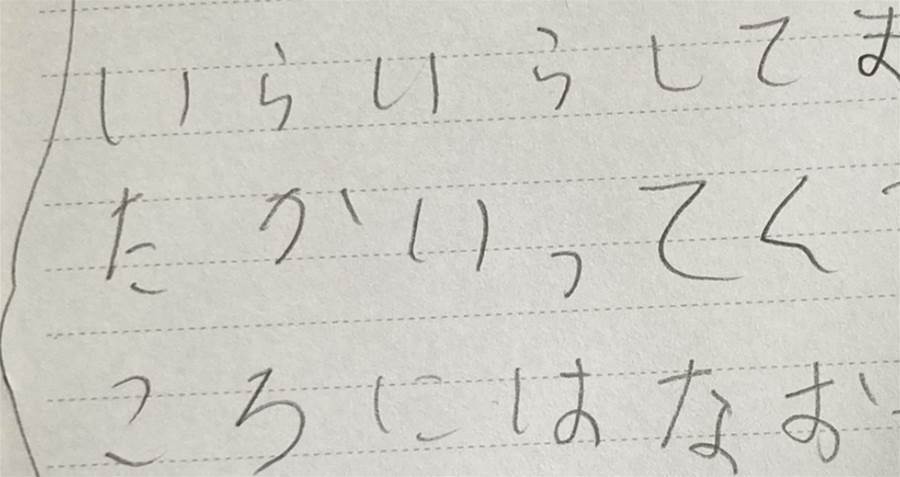 いらいらしてま
たかいってく
ころにはなお